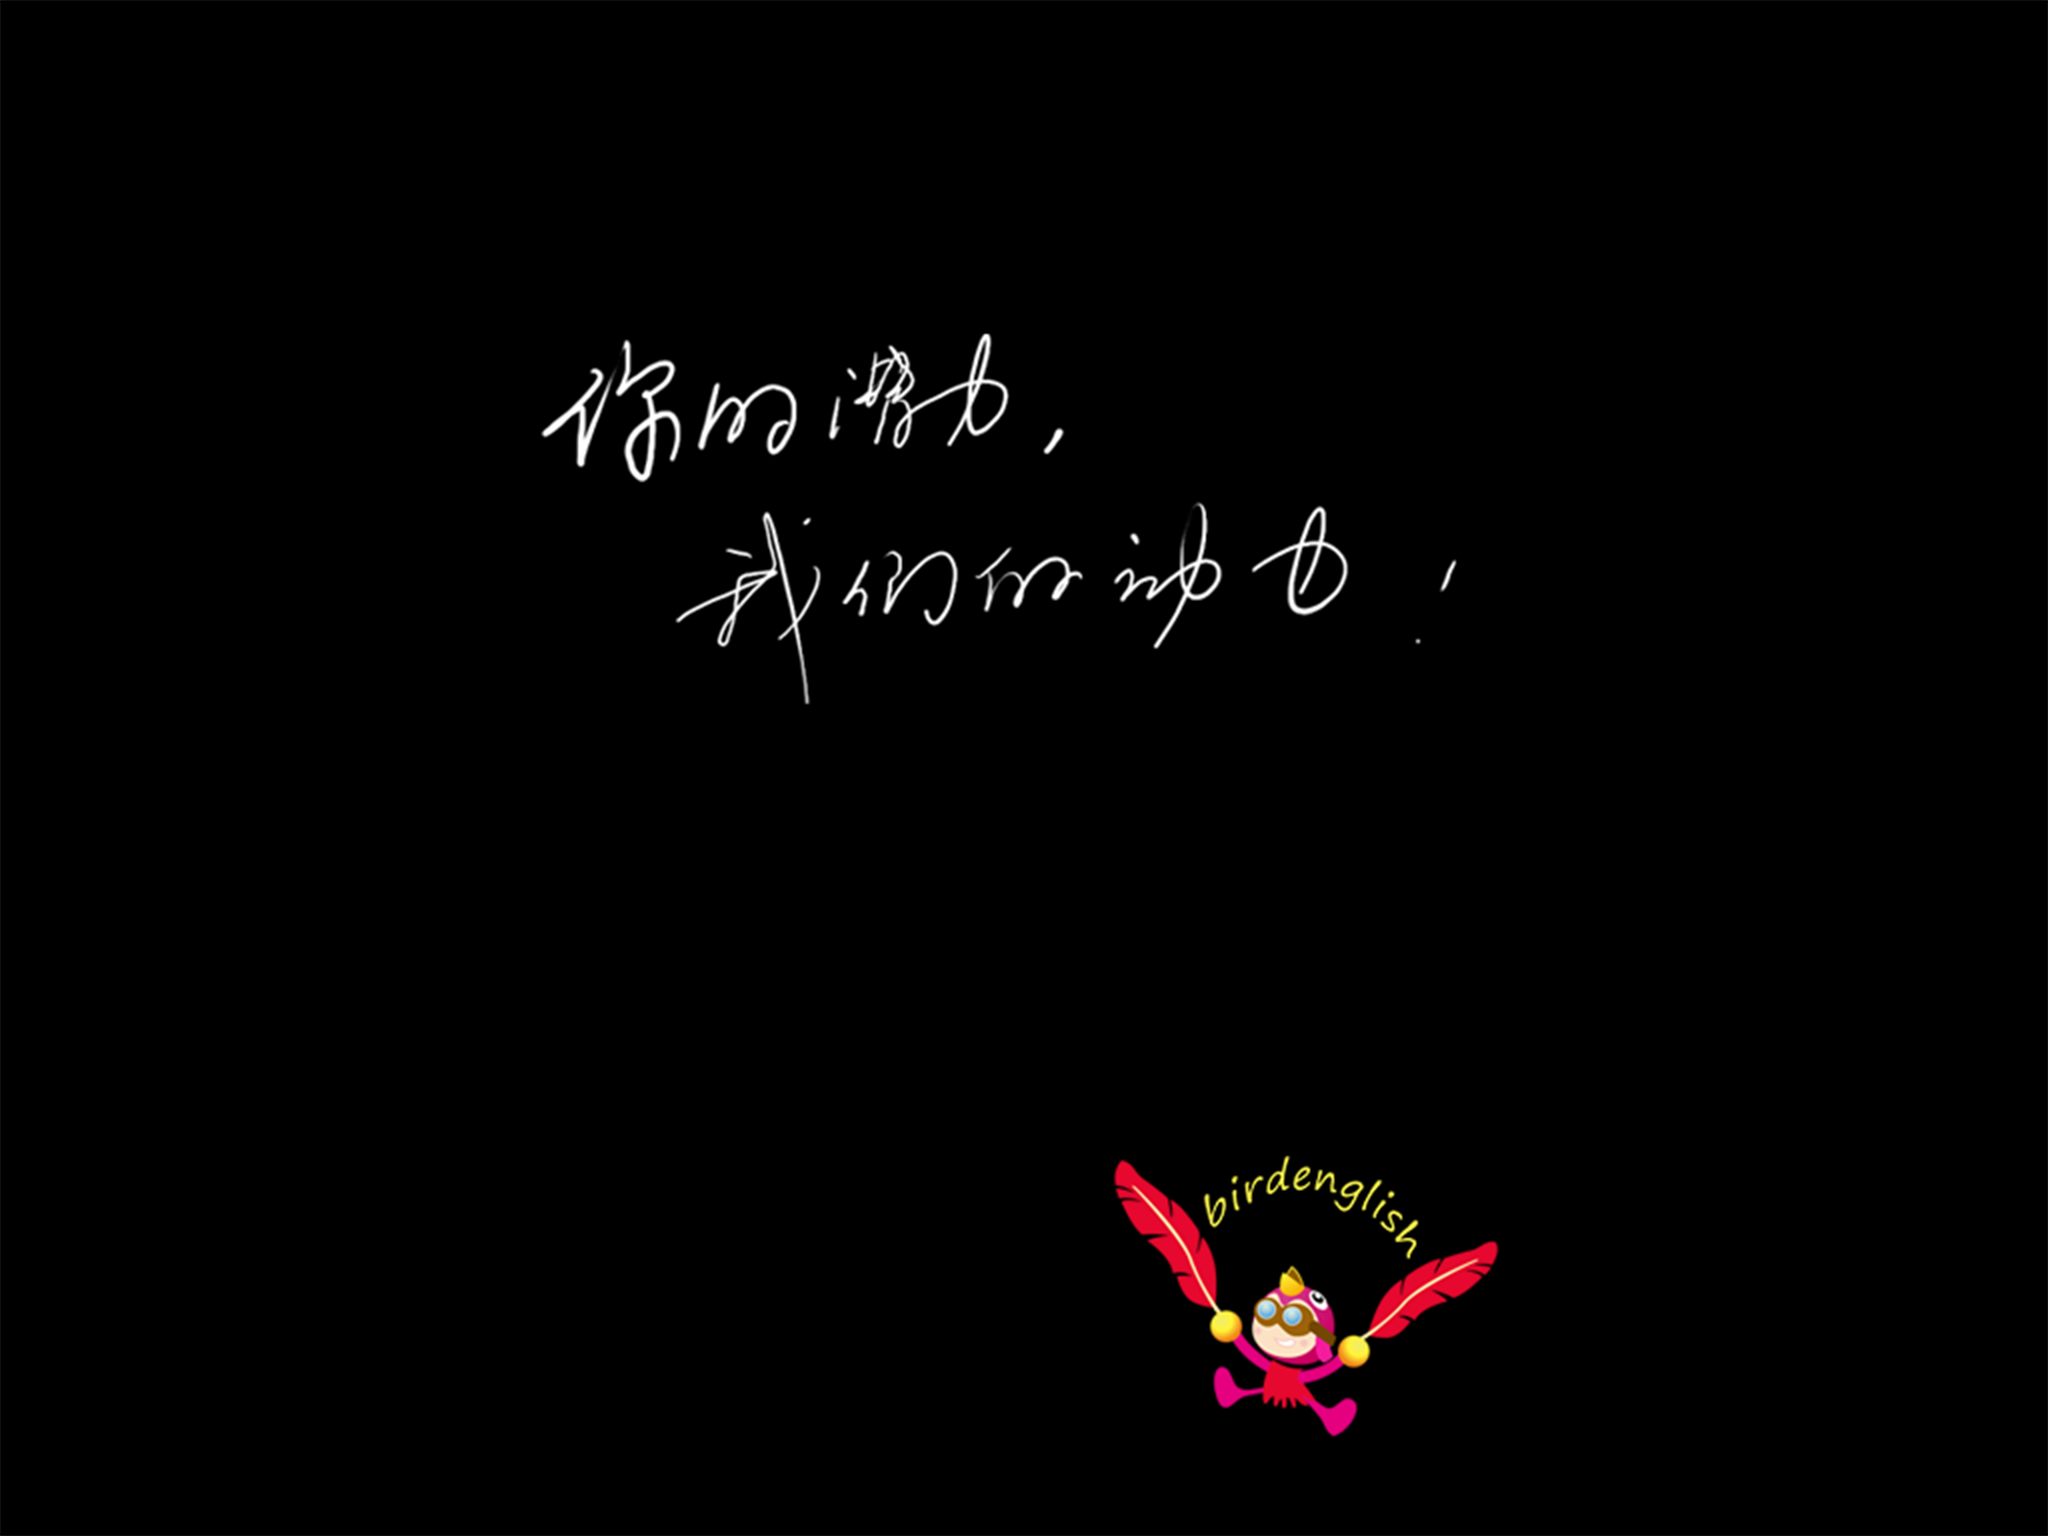 你的潜力，
我们的动力！
birdenglish